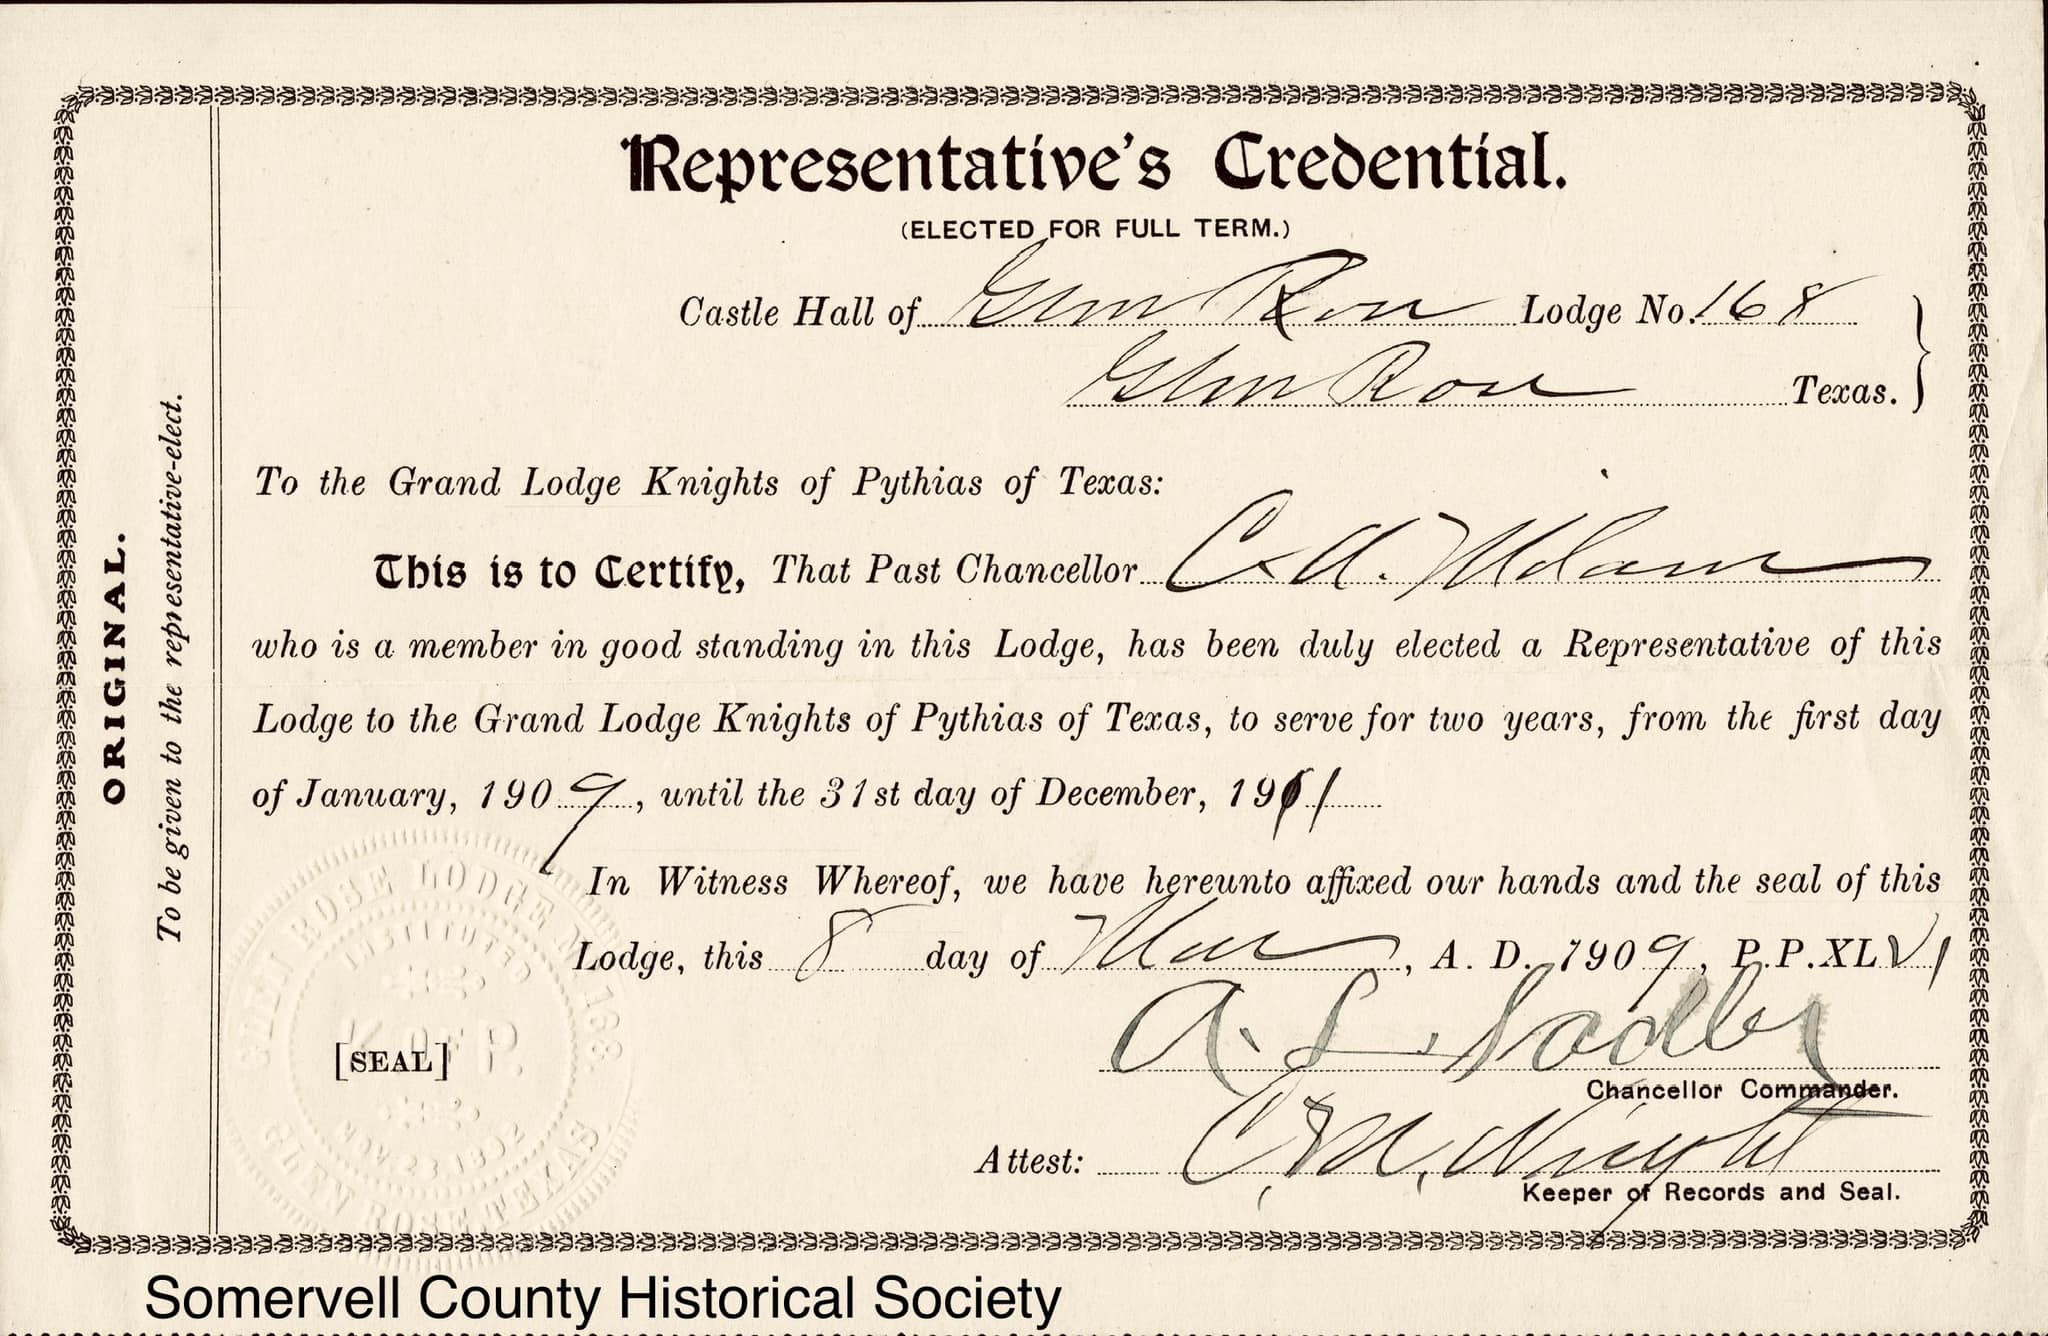 Representative's Credential.
(ELECTED FOR FULL TERM.)
Castle Hall of Glen Rose Lodge No. 168
Glen Rose Texas.
To the Grand Lodge Knights of Pythias of Texas:
This is to Certify, That Past Chancellor C. A. Milam
who is a member in good standing in this Lodge, has been duly elected a Representative of this
Lodge to the Grand Lodge Knights of Pythias of Texas, to serve for two years, from the first day
of January, 1909, until the 31st day of December, 1911
In Witness Whereof, we have hereunto affixed our hands and the seal of this
Lodge, this 8 day of Mar, A. D. 1909, P.P.XLVI
A. L. Sadler
Chancellor Commander.
Attest: C. M. Wright
Keeper of Records and Seal.
[SEAL]
GLEN ROSE LODGE No 168.
INSTITUTED
K OF P.
NOV. 23. 1892
GLEN ROSE TEXAS.
ORIGINAL.
To be given to the representative-elect.
Somervell County Historical Society